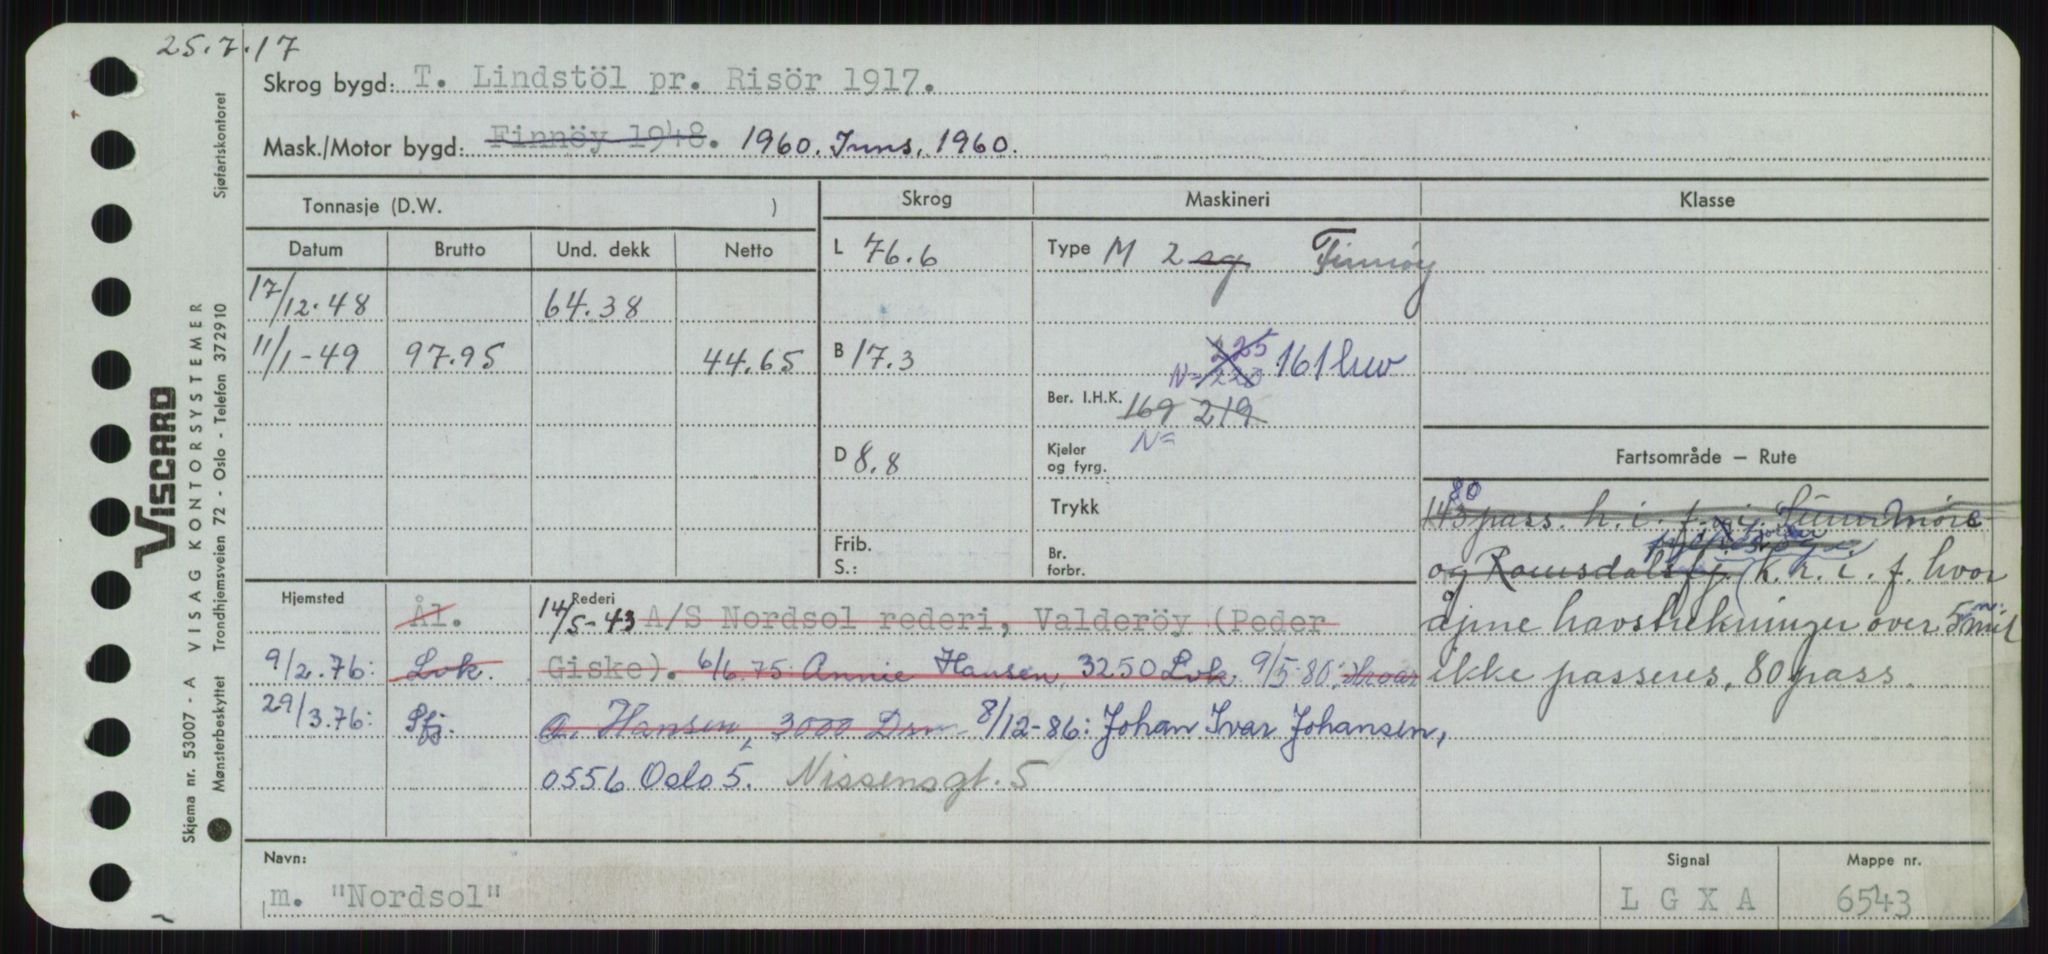 25.7.17
Skrog bygd: T. Lindstöl pr. Risör 1917.
Mask./Motor bygd: Finnöy 1948. 1960. Inns. 1960.
Tonnasje (D.W. )
Skrog
Maskineri
Klasse
Datum Brutto Und. dekk Netto
17/12-48 64.38
11/1-49 97.95 44.65
L 76.6
B 17.3
D 8.8
Frib.
S.:
Type M 2 sg Finnöy
225
N= 220 161 kw
Ber. I.H.K. 169 219
N=
Kjeler
og fyrg.
Trykk
Br.
forbr.
Fartsområde – Rute
80
143 pass. h. i. f. i. Sunnmöre
og Romsdalsfj. (k. h. i. f. hvor
åpne havstrekninger over 5 n. mil
ikke passeres, 80 pass.
Hjemsted
Ål.
9/2.76: Lvk.
29/3.76: Sfj.
Rederi
14/5-43 A/S Nordsol rederi, Valderöy (Peder
Giske). 6/6.75 Annie Hansen, 3250 Lvk 9/5-80: Roar
A. Hansen, 3000 Drm 8/12-86: Johan Ivar Johansen,
0556 Oslo 5. Nissensgt. 5
Navn:
m. "Nordsol"
Signal
L G X A
Mappe nr.
6543
VISCARD
Skjema nr. 53007 - A VISAG KONTORSYSTEMER Sjøfartskontoret
Mønsterbeskyttet Trondhjemsveien 72 - Oslo - Telefon 372910